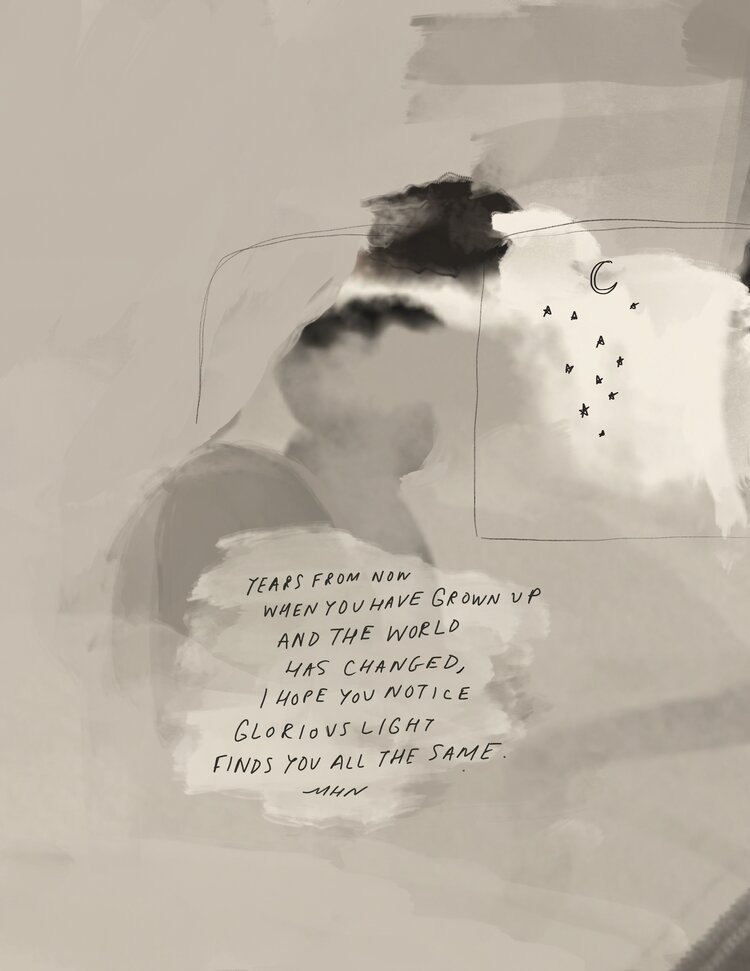 YEARS FROM NOW
WHEN YOU HAVE GROWN UP
AND THE WORLD
HAS CHANGED,
I HOPE YOU NOTICE
GLORIOUS LIGHT
FINDS YOU ALL THE SAME.
MHN